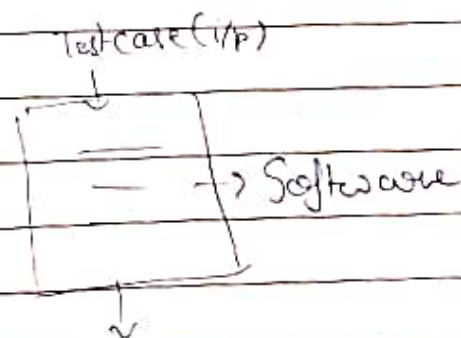 Test case (i/p)
Software